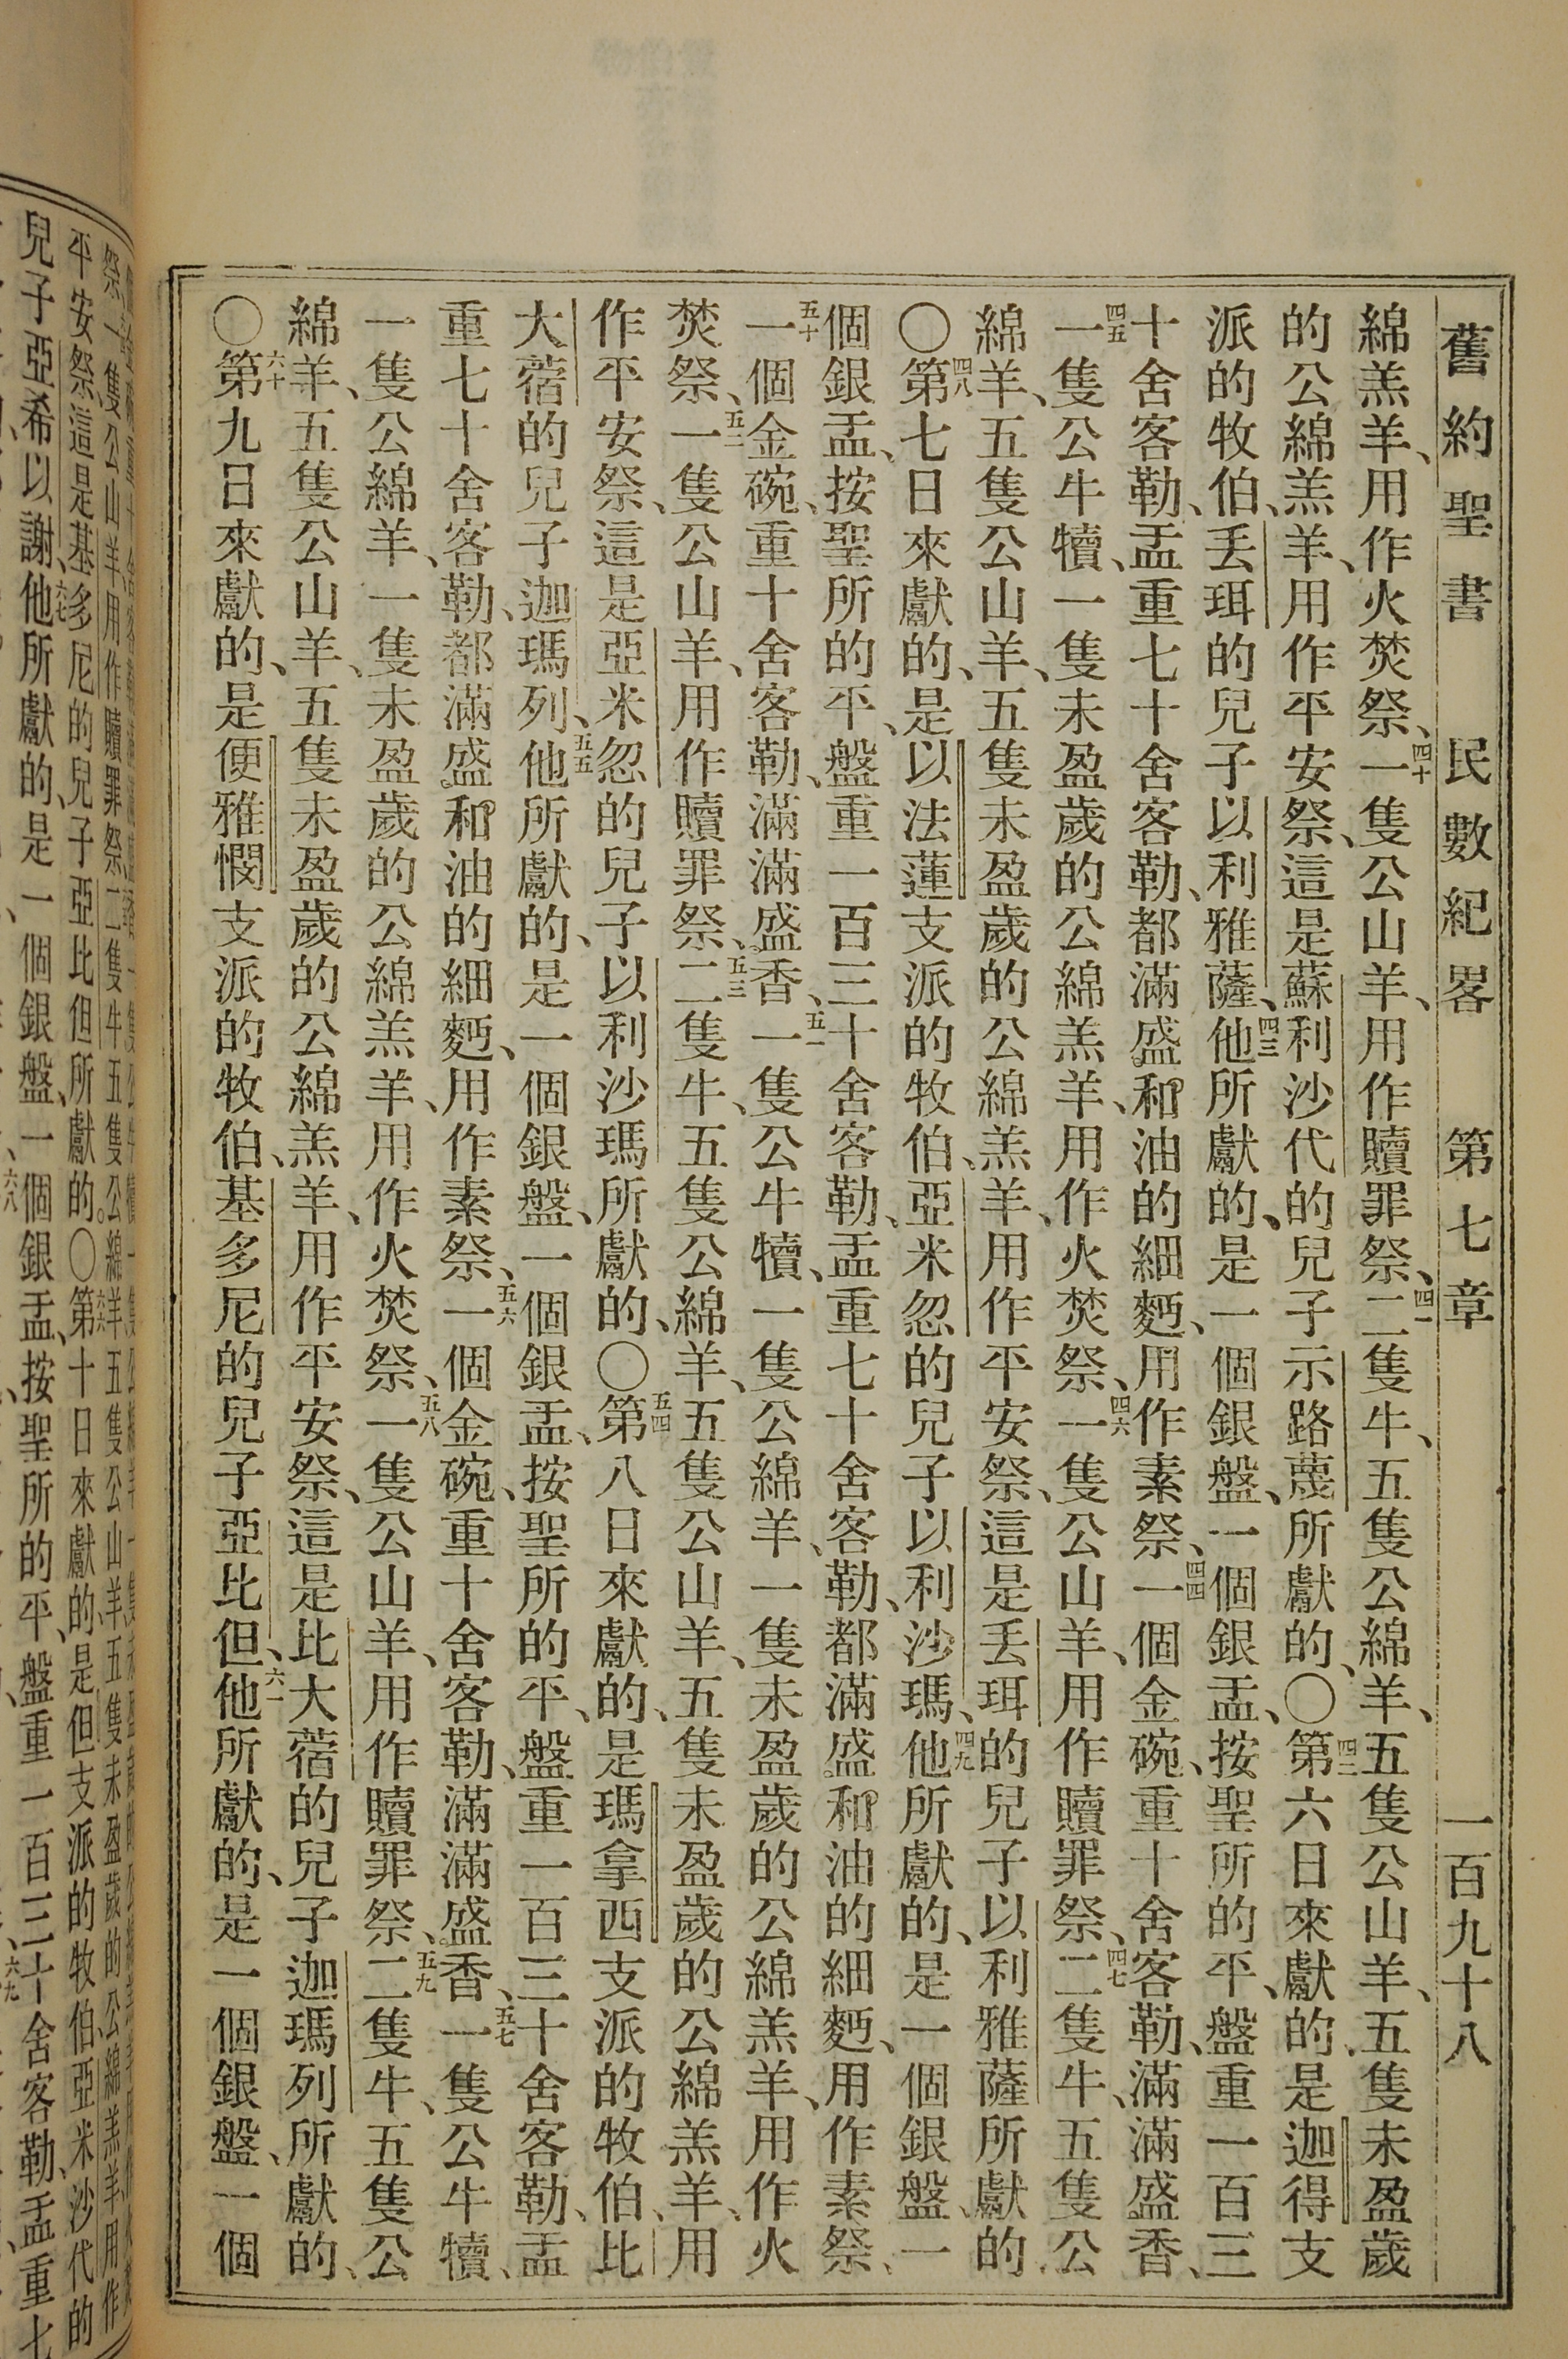 舊約聖書 民數紀畧 第七章 一百九十八
綿羔羊、用作火焚祭、四十一隻公山羊、用作贖罪祭、四一二隻牛、五隻公綿羊、五隻公山羊、五隻未盈歲
的公綿羔羊、用作平安祭、這是蘇利沙代的兒子示路蔑所獻的、〇四二第六日來獻的、是迦得支
派的牧伯、丟珥的兒子以利雅薩、四三他所獻的、是一個銀盤、一個銀盂、按聖所的平、盤重一百三
十舍客勒、盂重七十舍客勒、都滿盛和油的細麪、用作素祭、四四一個金碗、重十舍客勒、滿滿盛香、
四五一隻公牛犢、一隻未盈歲的公綿羔羊、用作火焚祭、四六一隻公山羊、用作贖罪祭、四七二隻牛、五隻公
綿羊、五隻公山羊、五隻未盈歲的公綿羔羊、用作平安祭、這是丟珥的兒子以利雅薩所獻的
〇四八第七日來獻的、是以法蓮支派的牧伯、亞米忽的兒子以利沙瑪、四九他所獻的、是一個銀盤、一
個銀盂、按聖所的平、盤重一百三十舍客勒、盂重七十舍客勒、都滿盛和油的細麪、用作素祭、
五十一個金碗、重十舍客勒、滿滿盛香、五一一隻公牛犢、一隻公綿羊、一隻未盈歲的公綿羔羊、用作火
焚祭、五二一隻公山羊、用作贖罪祭、五三二隻牛、五隻公綿羊、五隻公山羊、五隻未盈歲的公綿羔羊、用
作平安祭、這是亞米忽的兒子以利沙瑪所獻的、〇五四第八日來獻的、是瑪拿西支派的牧伯、比
大蓿的兒子迦瑪列、五五他所獻的、是一個銀盤、一個銀盂、按聖所的平、盤重一百三十舍客勒、盂
重七十舍客勒、都滿盛和油的細麪、用作素祭、五六一個金碗、重十舍客勒、滿滿盛香、五七一隻公牛犢、
一隻公綿羊、一隻未盈歲的公綿羔羊、用作火焚祭、五八一隻公山羊、用作贖罪祭、五九二隻牛、五隻公
綿羊、五隻公山羊、五隻未盈歲的公綿羔羊、用作平安祭、這是比大蓿的兒子迦瑪列所獻的、
〇六十第九日來獻的、是便雅憫支派的牧伯、基多尼的兒子亞比但、六一他所獻的、是一個銀盤、一個
祭、一隻公山羊用作贖罪祭、二隻牛五隻公綿羊五隻公山羊五隻未盈歲的公綿羔羊用作
平安祭、這是基多尼的兒子亞比但所獻的。〇六六第十日來獻的是但支派的牧伯亞米沙代的
兒子亞希以謝、六七他所獻的、是一個銀盤、一個銀盂、按聖所的平、盤重一百三十舍客勒、盂重七